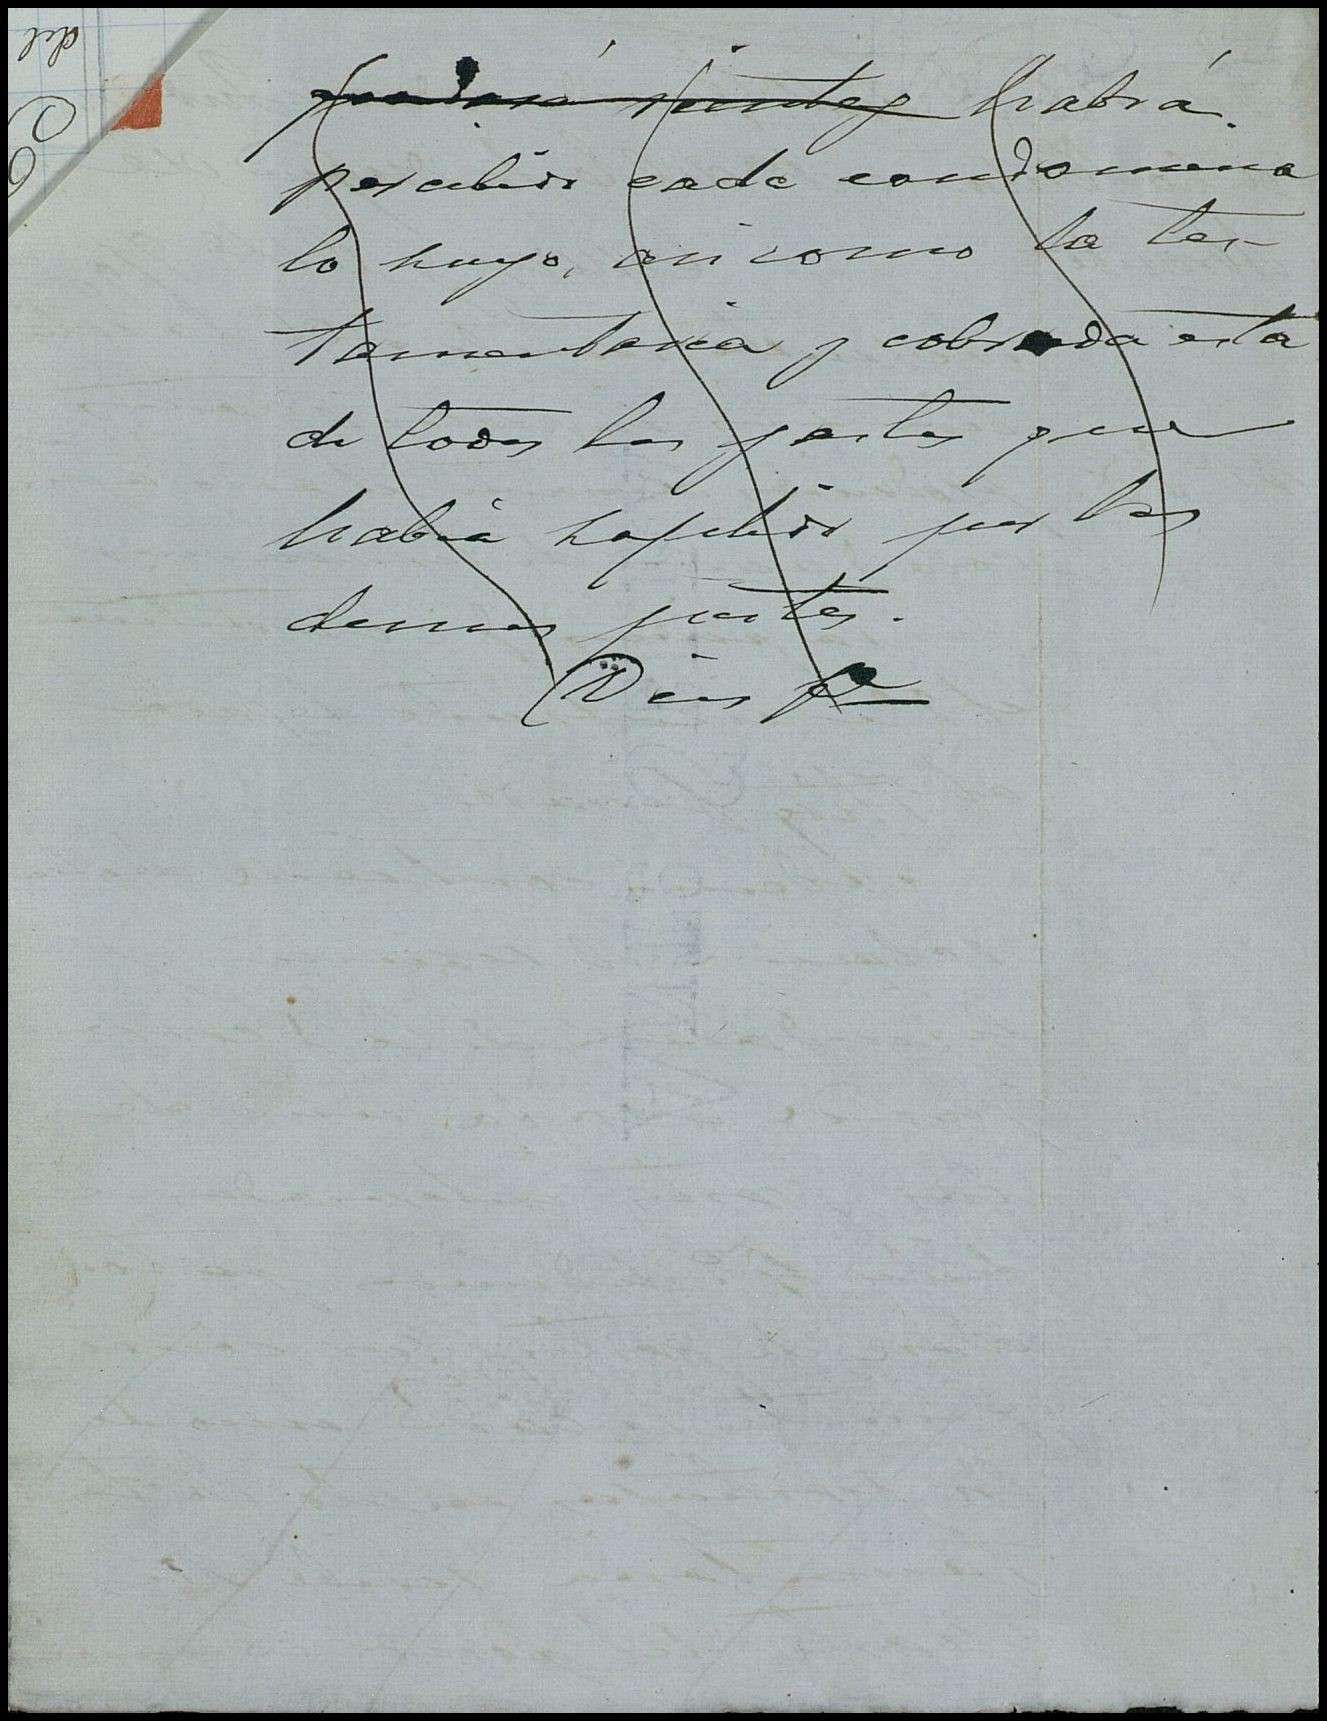 habrá
percibir cada condomino
lo suyo, asi como la tes-
tamentaria y cobrada esta
de todos los gastos que
habia suplido por las
demas partes.
Dios
del